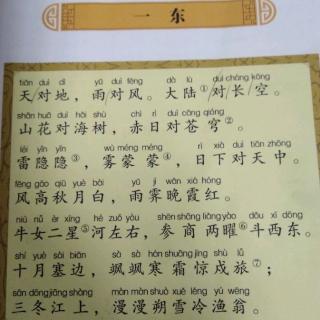 一 东
tiān duì dì yǔ duì fēng dà lù duì cháng kōng
天对地，雨对风。大陆①对长空。
shān huā duì hǎi shù chì rì duì cāng qióng
山花对海树，赤日对苍穹②。
léi yǐn yǐn wù méng méng rì xià duì tiān zhōng
雷隐隐③，雾蒙蒙④，日下对天中。
fēng gāo qiū yuè bái yǔ jì wǎn xiá hóng
风高秋月白，雨霁晚霞红。
niú nǚ èr xīng hé zuǒ yòu shēn shāng liǎng yào dǒu xī dōng
牛女二星⑤河左右，参商两曜⑥斗西东。
shí yuè sài biān sà sà hán shuāng jīng shù lǚ
十月塞边，飒飒寒霜惊戍旅⑦；
sān dōng jiāng shàng màn màn shuò xuě lěng yú wēng
三冬江上，漫漫朔雪冷渔翁。